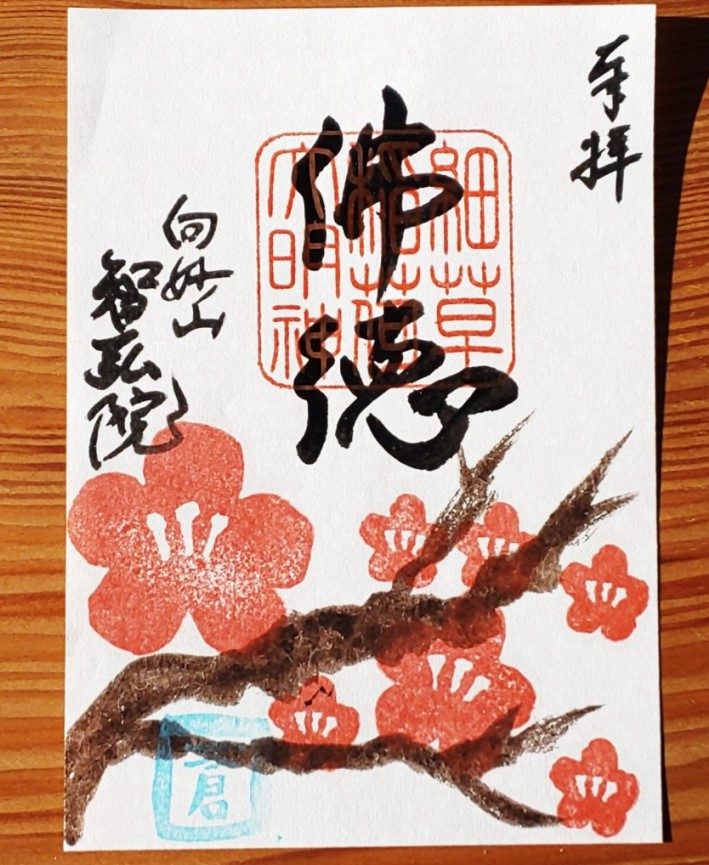 奉拝
細草
稲荷
大明神
佛徳
向妙山
智弘院